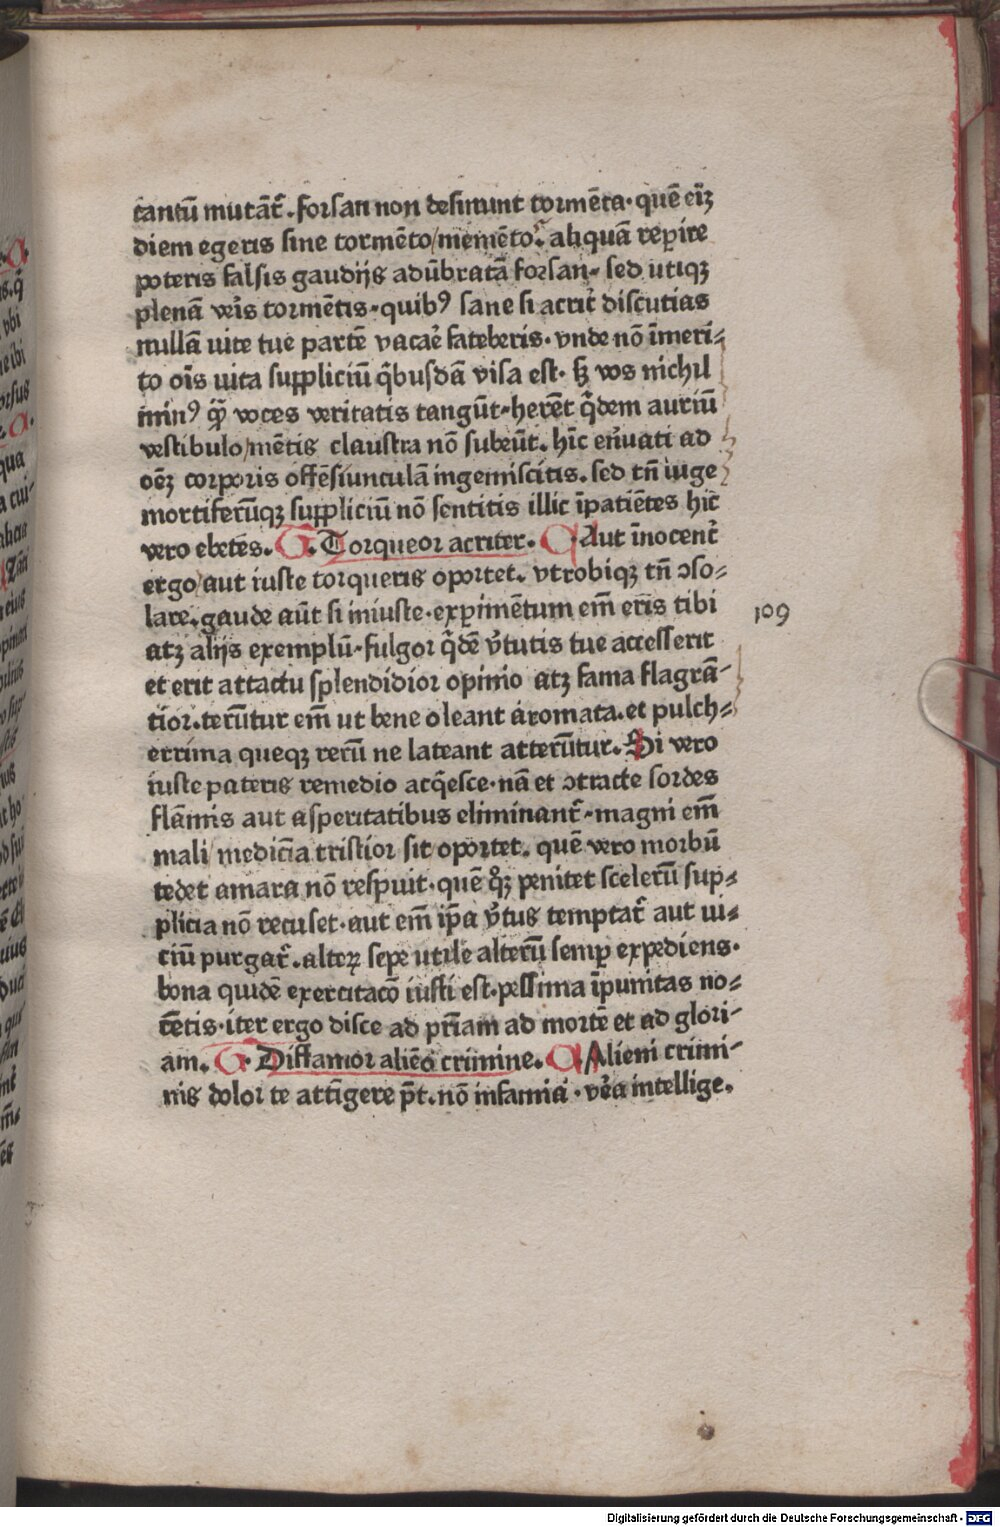 tantū mutāt᷑. forsan non desinunt tormēta. quē eīꝫ
diem egeris sine tormēto/memēto᷑. aliquā reꝑire
poteris falsis gaudijs adūbratā forsan. sed utiqꝫ
plenā veris tormētis. quibꝰ sane si acrit᷑ discutias
nullā uite tue partē vacaē fateberis. vnde nō īmeri-
to oīs uita suppliciū q̄busdā visa est. sꝫ vos nichil
minꝰ ꝙ̄ voces veritatis tangūt. herēt q̄dem auriū
vestibulo/mētis claustra nō subeūt. hīc eñuati ad
oēꝫ corporis offēsiunculā ingemiscitis. sed tñ iuge
mortiferūqꝫ suppliciū nō sentitis illic īpatiētes hic
vero ebetes. G. Torqueor acriter. C Aut īnocent᷑
ergo/aut iuste torqueris oportet. vtrobiqꝫ tñ ɔso-
lare. gaude aūt si iniuste. exꝑimētum em̄ eris tibi
atꝫ alijs exemplū. fulgor q̄dē v᷑tutis tue accesserit
et erit attactu splendidior opinio atꝫ fama flagrā-
tior. terūtur em̄ ut bene oleant aromata. et pulch-
errima queqꝫ rerū ne lateant atterūtur. Si vero
iuste pateris remedio acq̄esce. nā et ɔtracte sordes
flāmis aut asperitatibus eliminant᷑. magni em̄
mali/medicīa tristior sit oportet. quē vero morbū
tedet amara nō respuit. quē qꝫ penitet scelerū sup-
plicia nō recuset. aut em̄ ip̄a v᷑tus temptat᷑ aut ui-
ciū purgat᷑. alteꝝ sepe utile alterū semꝑ expediens.
bona quidē exercitacō iusti est. pessima īpunitas no-
cētis. iter ergo disce ad pr̄iam ad mortē et ad glori-
am. G. Diffamor aliēo crimine. C Alieni crimi-
nis dolor te attīgere pt̄. nō infamia. v᷑ea intellige.
109
Digitalisierung gefördert durch die Deutsche Forschungsgemeinschaft - DFG